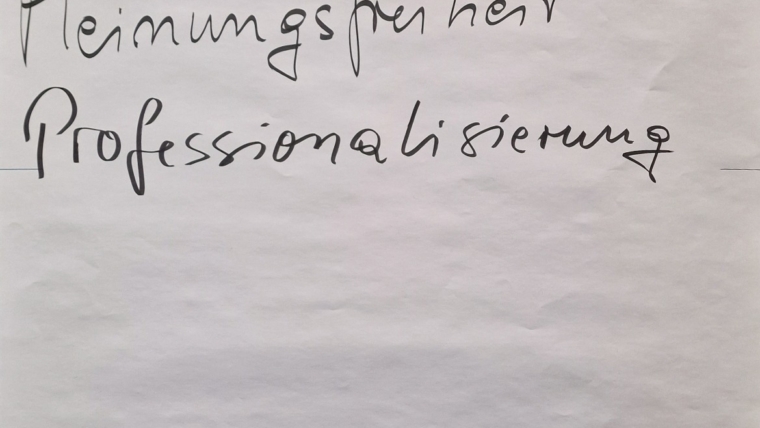 Meinungsfreiheit
Professionalisierung